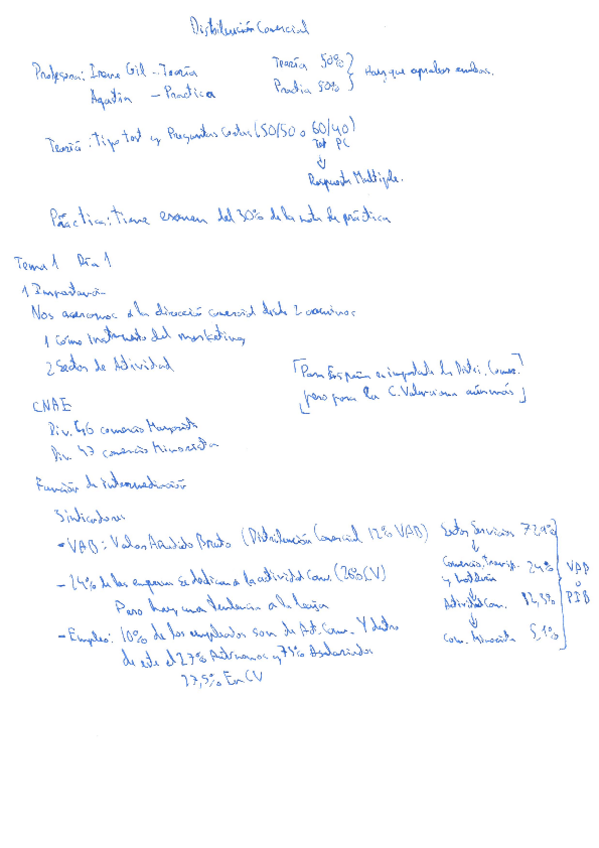 Distribución Comercial
Profesora: Irene Gil - Teoría
Agustín - Practica
Teoría 50%
Practica 50%
Hay que aprobar ambas.
Teoría: Tipo test y Preguntas Cortas (50/50 o 60/40)
Test PC
Respuesta Multiple.
Práctica: Tiene examen del 30% de la nota de práctica
Tema 1 Día 1
1 Importancia
Nos acercamos a la dirección comercial desde 2 caminos
1 Cómo Instrumento del marketing
2 Sector de Actividad
Para España es importante la Distri. Comer.
pero para la C. Valenciana aún más
CNAE
Div. 46 comercio Mayorista
Div. 47 comercio Minorista
Función de intermediación
3 indicadores
- VAB: Valor Añadido Bruto (Distribución Comercial 12% VAB)
- 24% de las empresas se dedican a la actividad Com. (26% CV)
Pero hay una tendencia a la baja
- Empleo: 10% de los empleados son de Act. Com. Y dentro
de este el 27% Autónomos y 73% Asalariados
27,5% En CV
Sector Servicios
Comercio, Transp. 24%
y hostelería
Actividad Com.
Com. Minorista 5,1%
VAB
o
PIB